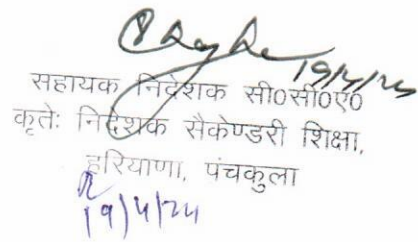 19/4/24
सहायक निदेशक सी०सी०ए०
कृतेः निदेशक सैकेण्डरी शिक्षा,
हरियाणा, पंचकुला
19/4/24